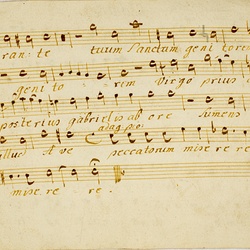 ran: te tuum Sanctum geni torem
geni to rem Virgo prius
posterius gabrielis ab ore sumens
adagio
illud Ave peccatorum mise re re
mise re re.